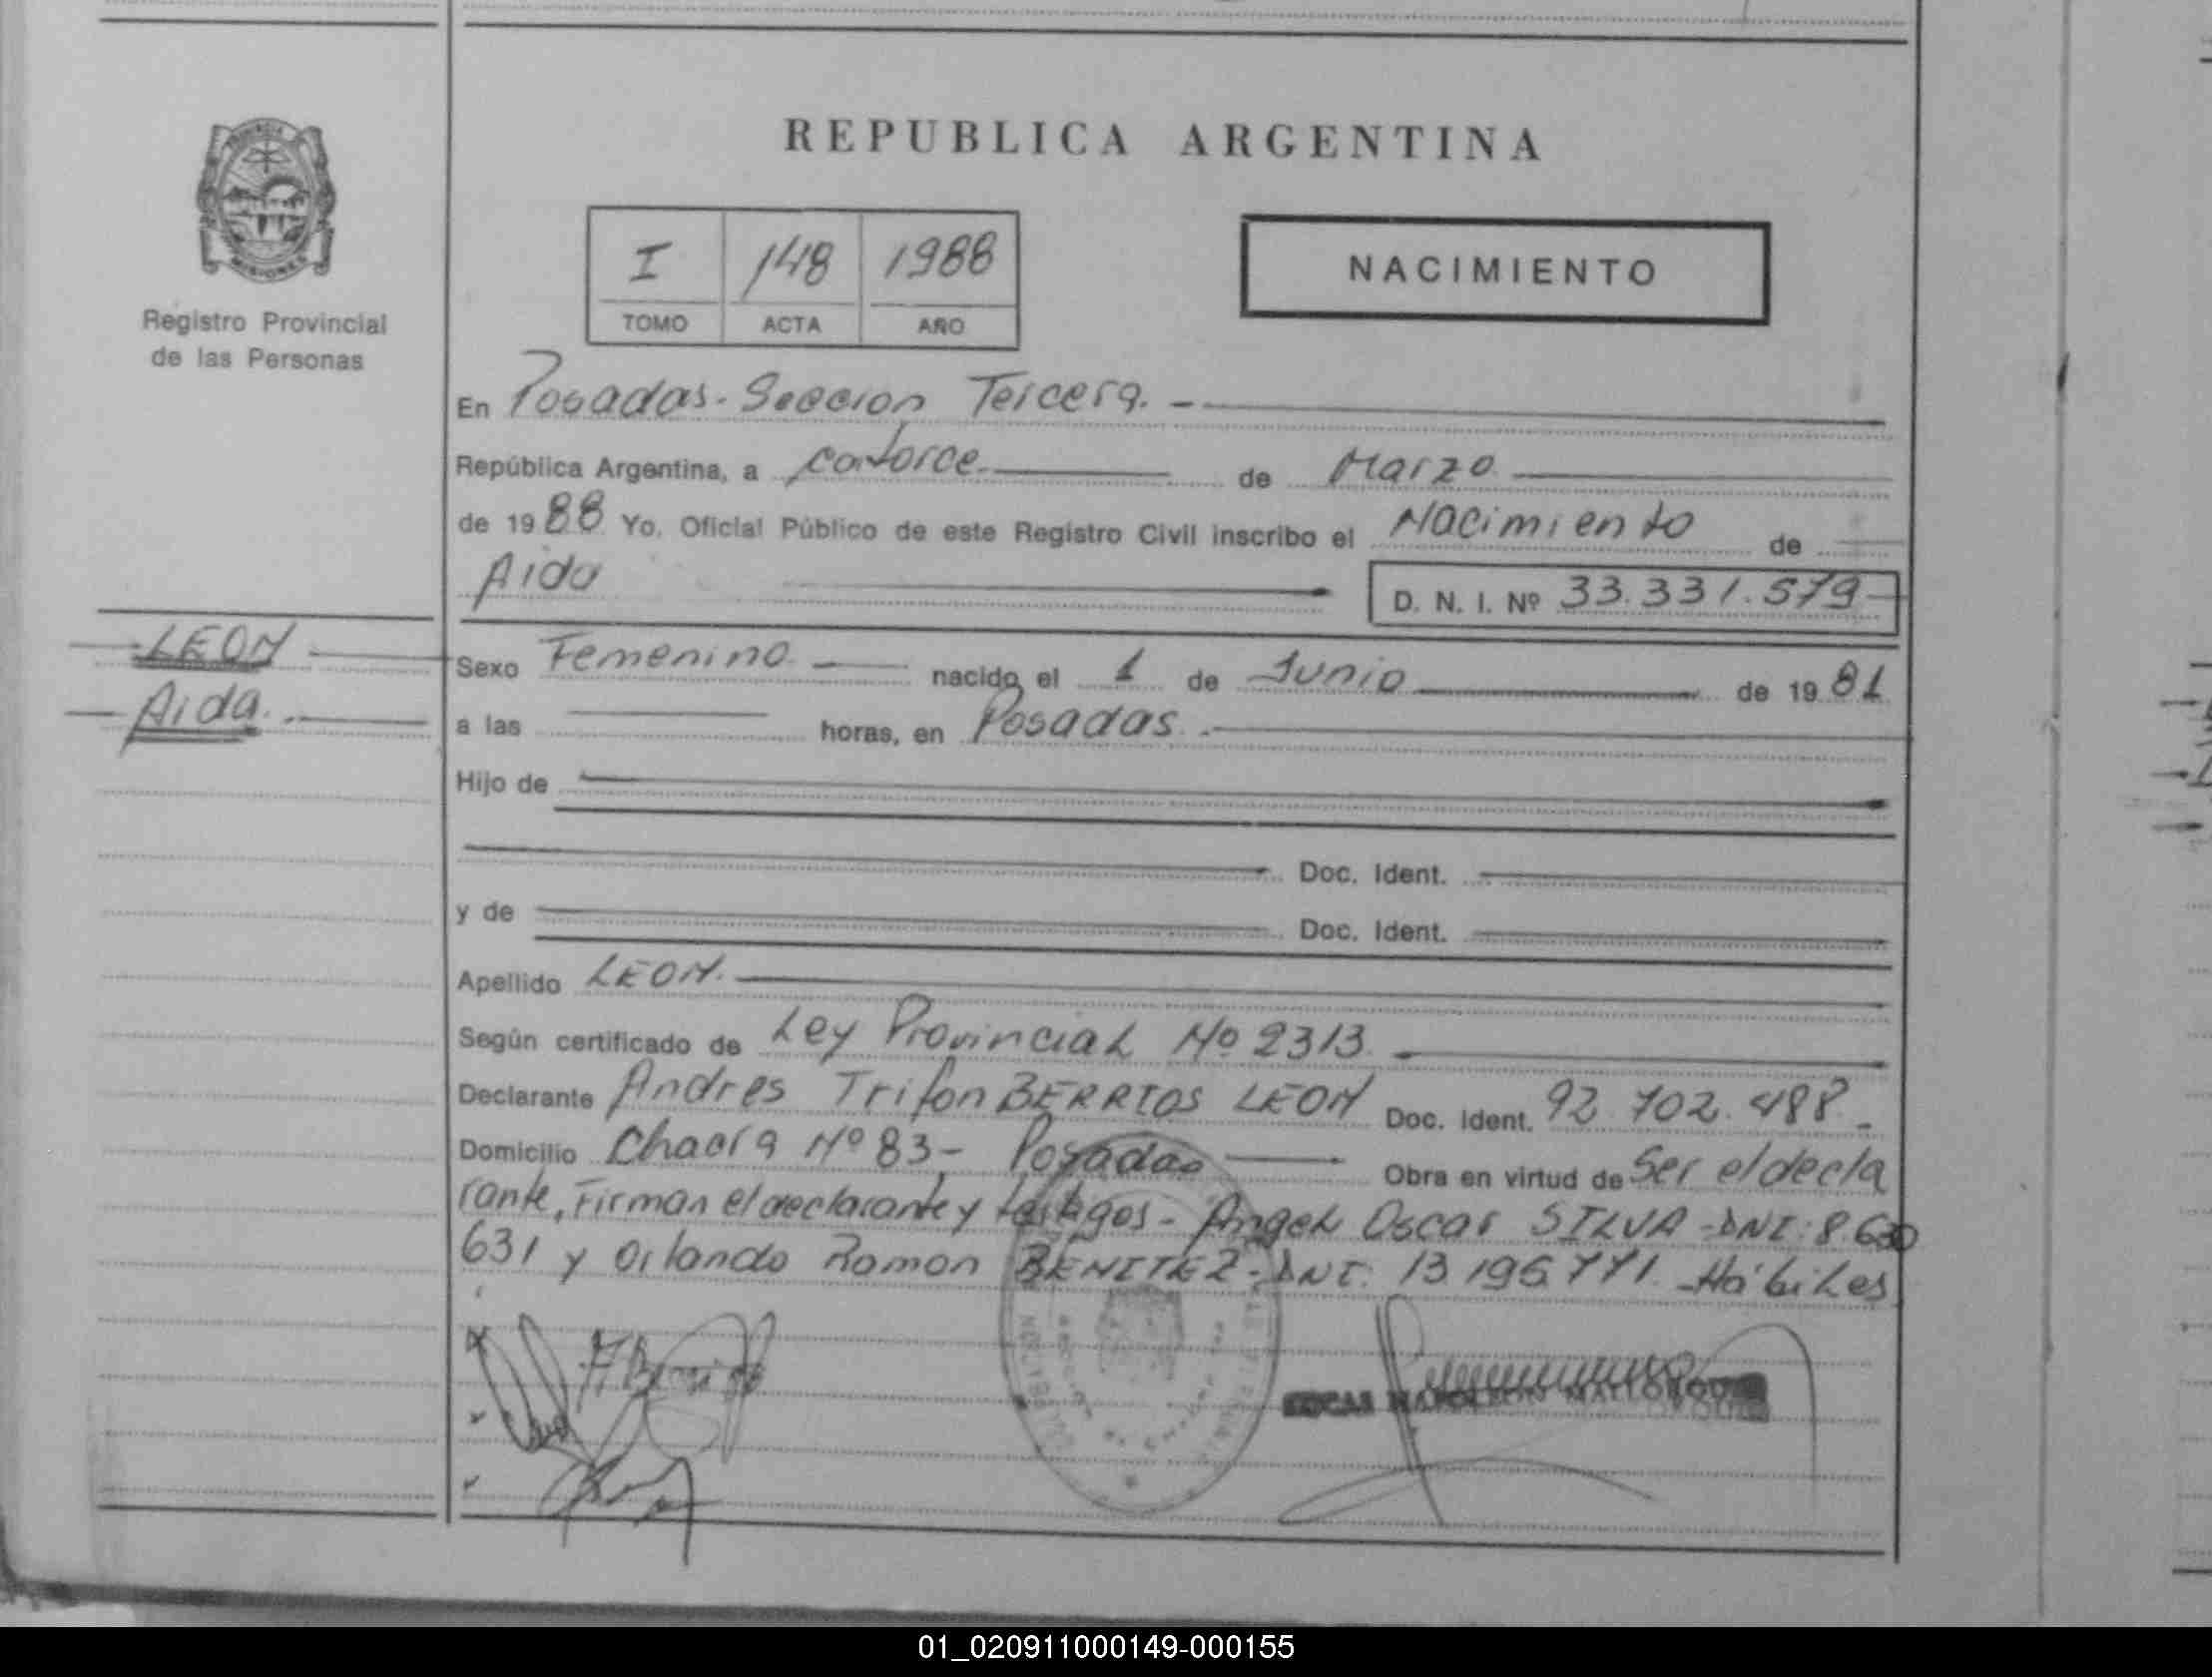 REPUBLICA ARGENTINA
MISIONES
Registro Provincial
de las Personas
I 148 1988
TOMO ACTA AÑO
NACIMIENTO
En Posadas. Seccion Tercera.
República Argentina, a catorce de Marzo
de 1988 Yo, Oficial Público de este Registro Civil inscribo el Nacimiento de
Aida D. N. I. Nº 33.331.579
LEON
Aida.
Sexo Femenino nacido el 1 de Junio de 1981
a las horas, en Posadas.
Hijo de
Doc. Ident.
y de Doc. Ident.
Apellido LEON.
Según certificado de Ley Provincial Nº 2313
Declarante Andres Trifon BERRIOS LEON Doc. Ident. 92.702.488
Domicilio Chacra Nº 83- Posadas Obra en virtud de Ser el decla
rante, Firman el declarante y testigos - Angel Oscar SILVA - DNI: 8.630
631 y Orlando Ramon BENITEZ - DNI: 13.196.771. Hábiles
01_020911000149-000155